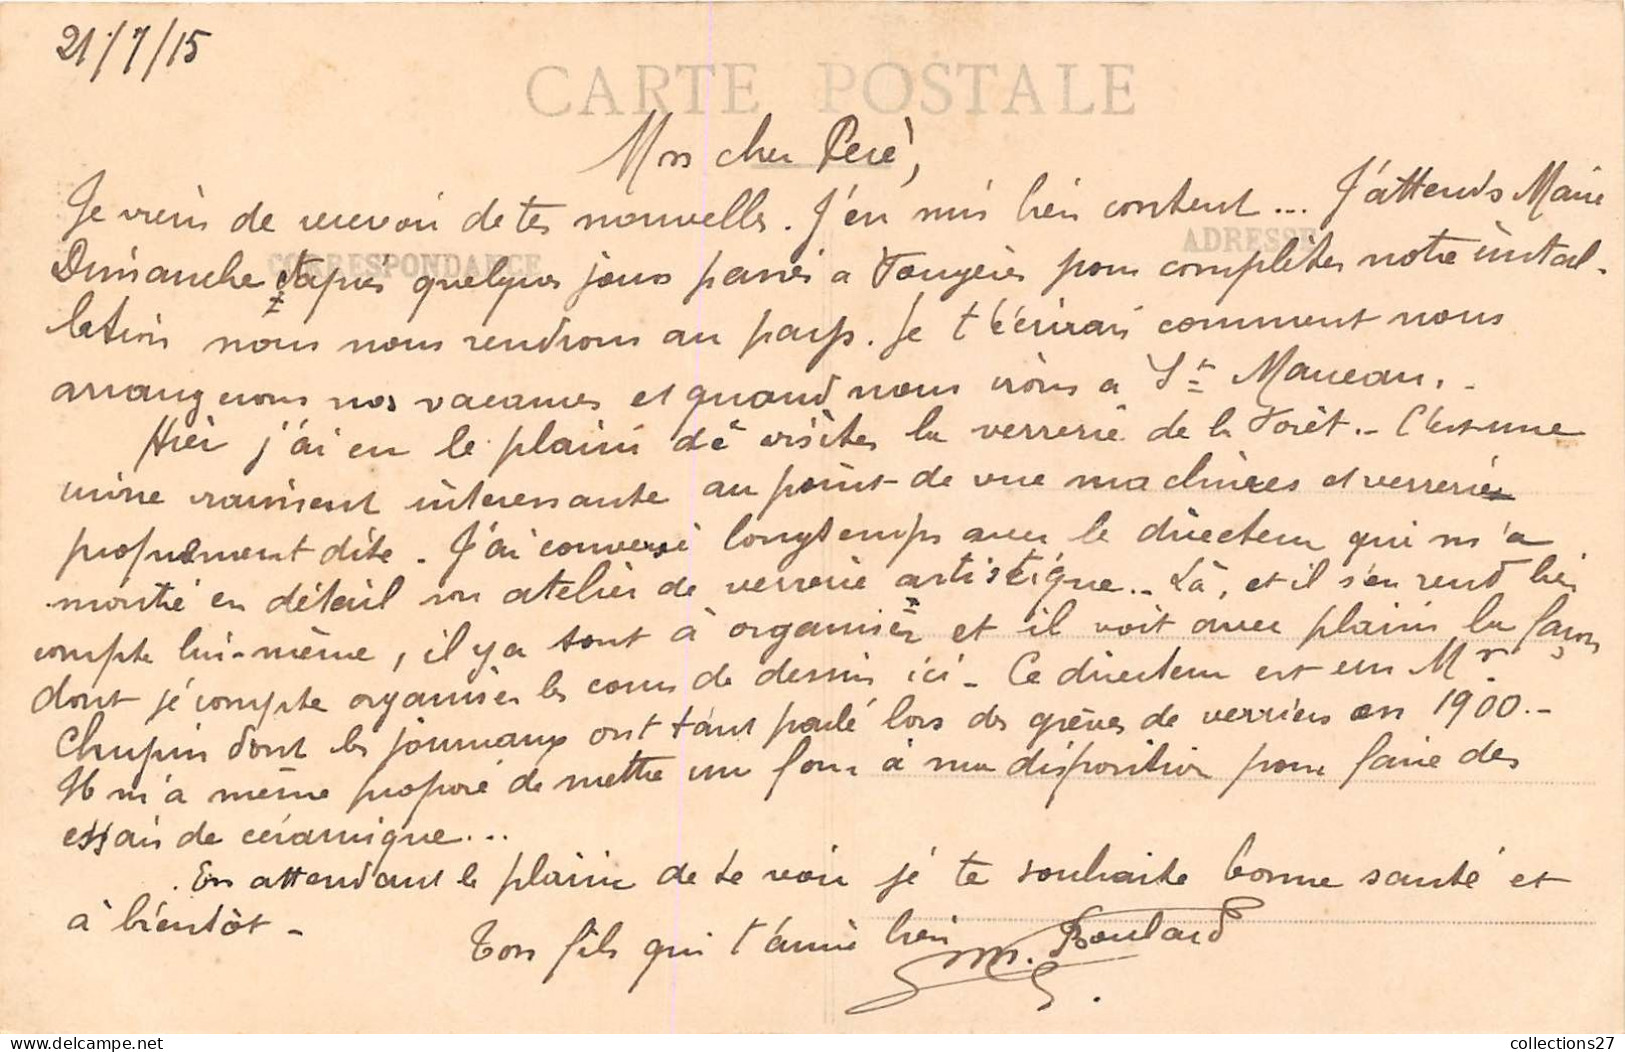 21/7/15
CARTE POSTALE
Mon cher Père,
Je viens de recevoir de tes nouvelles. J'en suis bien content... J'attends Marie
ADRESSE
CORRESPONDANCE
Dimanche et après quelques jours passés à Fougères pour compléter notre instal-
lation nous nous rendrons au pays. Je t'écrirai comment nous
arrangerons nos vacances et quand nous irons à St Marceau. -
Hier j'ai eu le plaisir de visiter la verrerie de la Forêt. - C'est une
usine vraiment intéressante au point de vue machines et verrerie
proprement dite. J'ai conversé longtemps avec le directeur qui m'a
montré en détail son atelier de verrerie artistique.. Là, et il s'en rend bien
compte lui-même, il y a tout à organiser et il voit avec plaisir la façon
dont je compte organiser les cours de dessin ici - Ce directeur est un Mr
Chupin dont les journaux ont tant parlé lors des grèves de verriers en 1900. -
Il m'a même proposé de mettre un four à ma disposition pour faire des
essais de céramique...
En attendant le plaisir de te voir je te souhaite bonne santé et
à bientôt -
Ton fils qui t'aime bien
M. Boulard
collections27